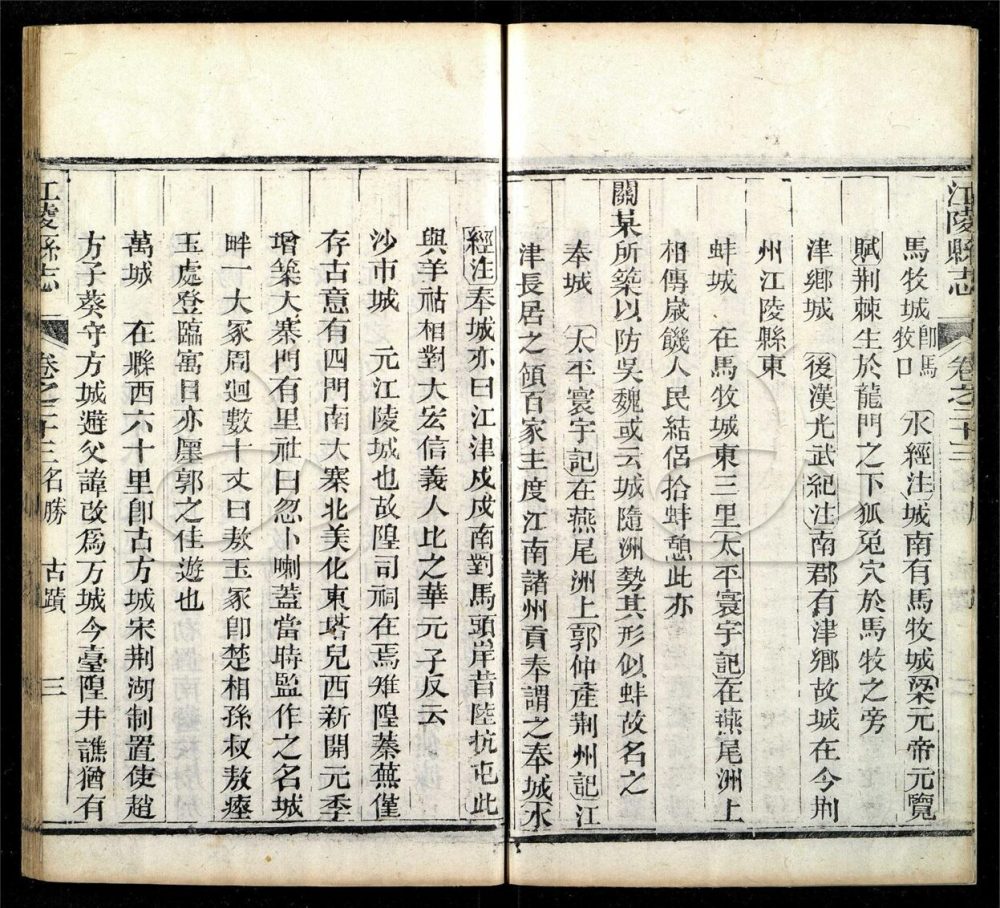 江陵縣志 卷之二十三
馬牧城卽馬牧口 水經注城南有馬牧城梁元帝元覽
賦荆棘生於龍門之下狐兔穴於馬牧之旁
津鄉城 後漢光武紀注南郡有津鄉故城在今荆
州江陵縣東
蚌城 在馬牧城東三里太平寰宇記在燕尾洲上
相傳嵗饑人民結侶拾蚌憩此亦
關某所築以防吳魏或云城隨洲勢其形似蚌故名之
奉城 太平寰宇記在燕尾洲上郭仲產荆州記江
津長居之領百家主度江南諸州貢奉謂之奉城水
經注奉城亦曰江津戍戍南對馬頭岸昔陸抗屯此
與羊祜相對大宏信義人比之華元子反云
沙市城 元江陵城也故隍司祠在焉雉隍蓁蕪僅
存古意有四門南大寨北美化東塔兒西新開元季
增築大寨門有里社曰忽小喇蓋當時監作之名城
畔一大冢周迴數十丈曰敖王冢卽楚相孫叔敖瘞
玉處登臨寓目亦㕓郭之佳遊也
萬城 在縣西六十里卽古方城宋荆湖制置使趙
方子葵守方城避父諱改爲万城今臺隍井譙猶有
江陵縣志 卷之二十三 名勝 古蹟 三